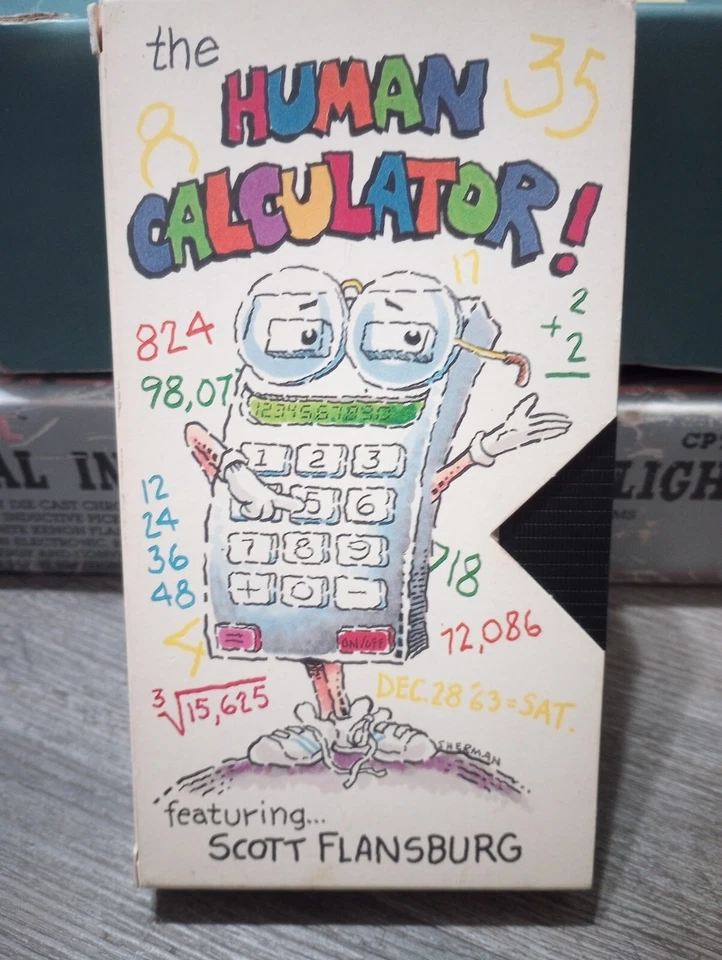 the
HUMAN
35
8
CALCULATOR!
17
2
+ 2
824
98,07
1234567890
1 2 3
5 6
7 8 9
+ 0 -
= ON/OFF
12
24
36
48
718
4
12,086
3√15,625
DEC. 28 '63 = SAT.
SHERMAN
featuring...
SCOTT FLANSBURG
AL IN
DIE CAST CHR
CP
LIGH
MS